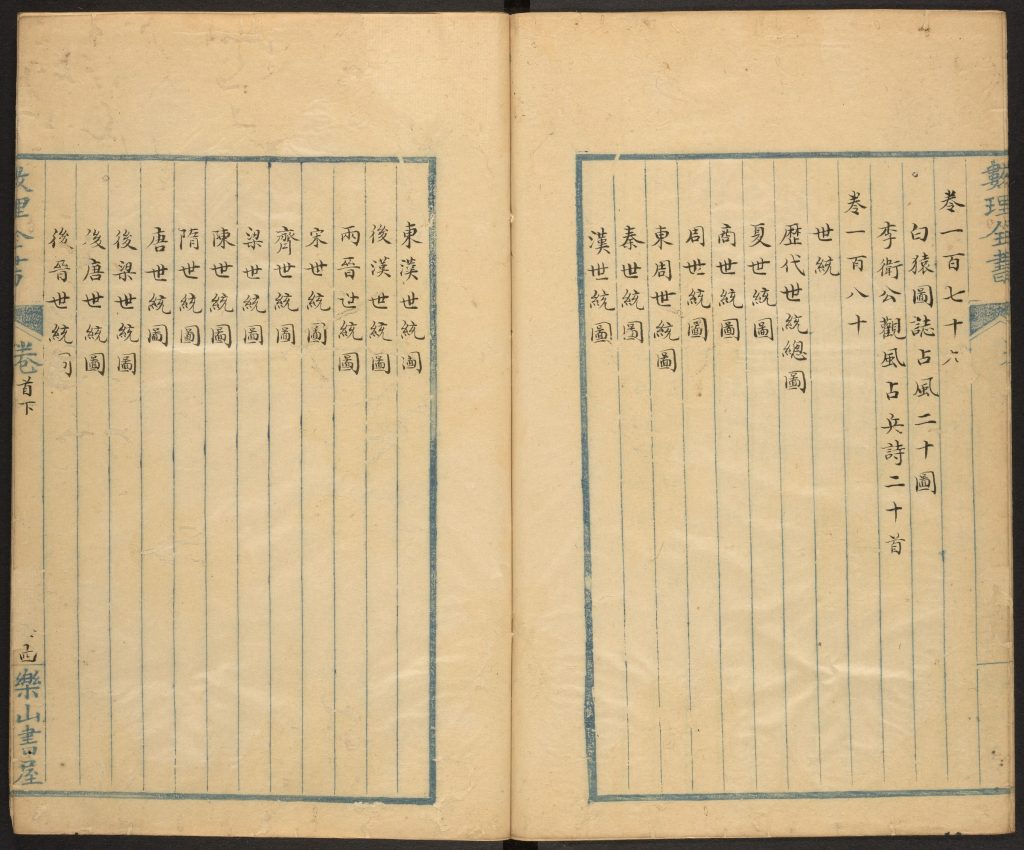 數理全書
卷一百七十六
白猿圖誌占風二十圖
李衛公觀風占兵詩二十首
卷一百八十
世統
歷代世統總圖
夏世統圖
商世統圖
周世統圖
東周世統圖
秦世統圖
漢世統圖
東漢世統圖
後漢世統圖
兩晉世統圖
宋世統圖
齊世統圖
梁世統圖
陳世統圖
隋世統圖
唐世統圖
後梁世統圖
後唐世統圖
後晉世統圖
數理全書
卷首下
樂山書屋